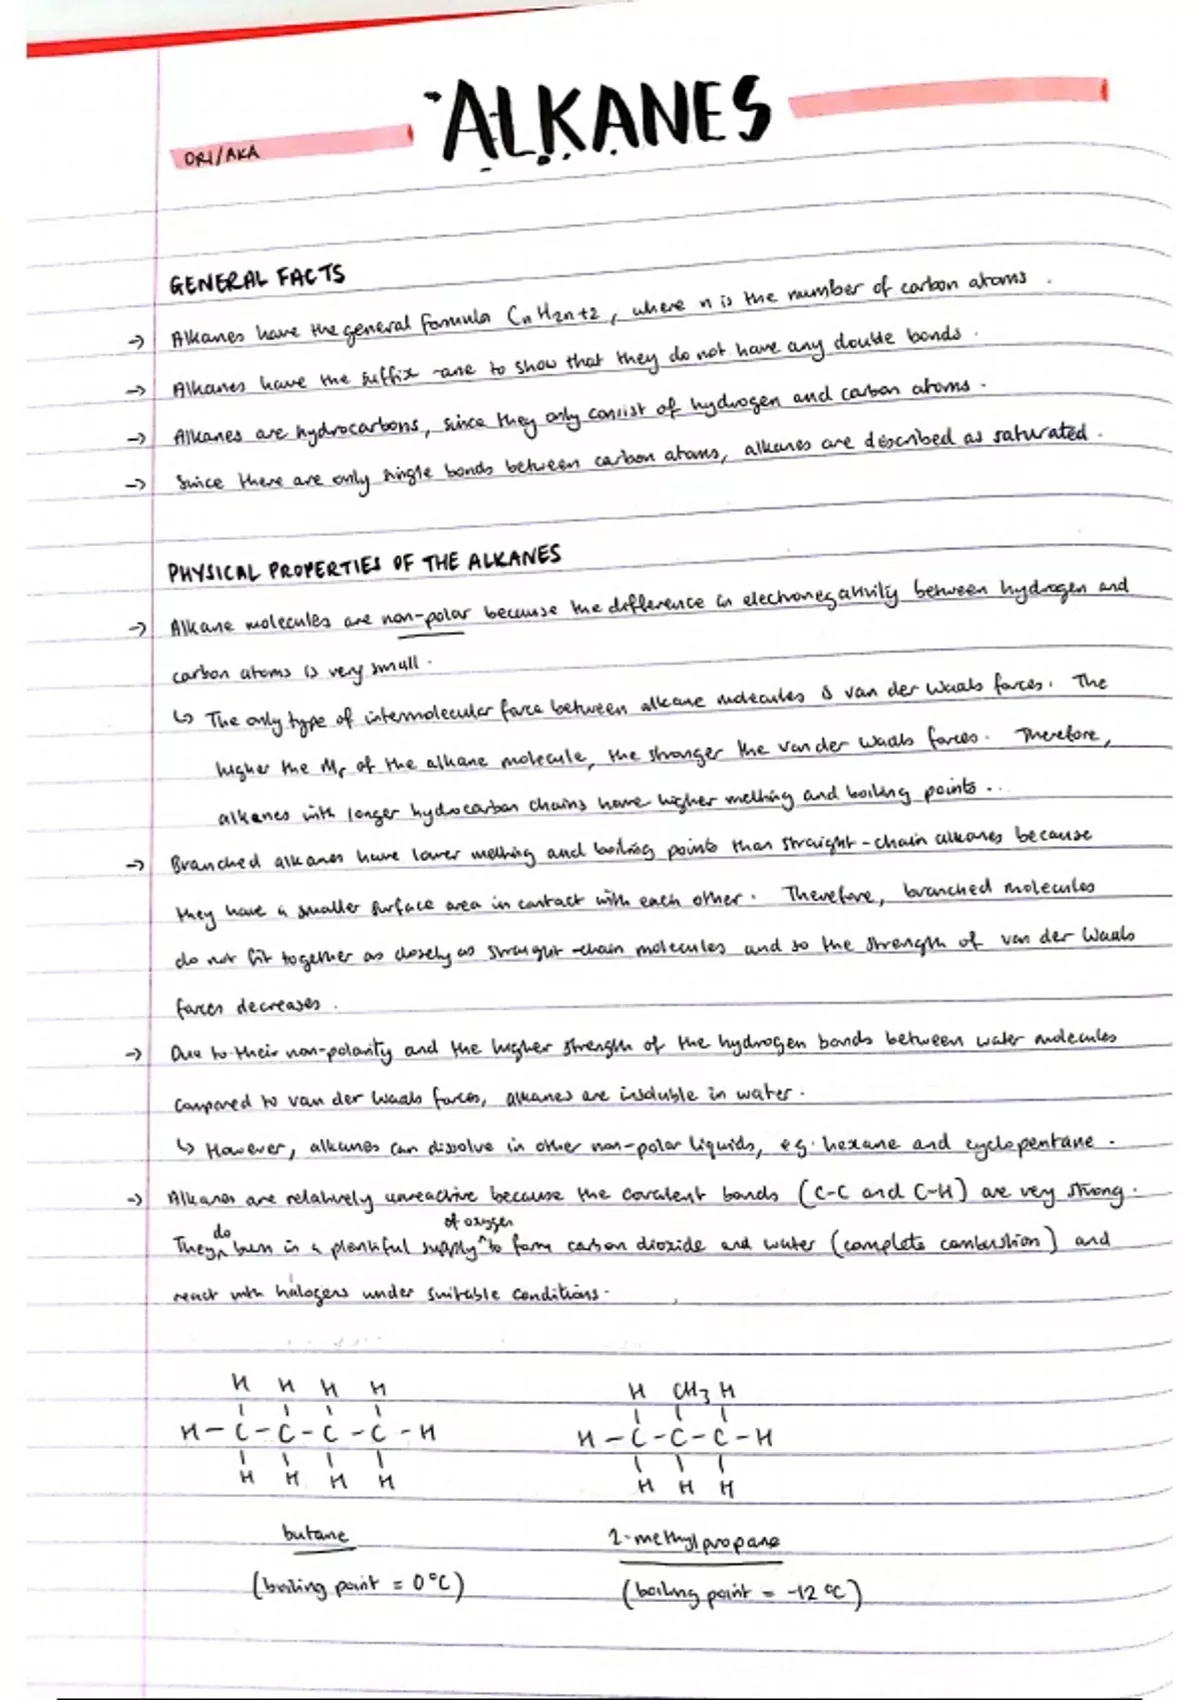 ALKANES
ORI/AKA
GENERAL FACTS
→ Alkanes have the general formula CnH2n+2, where n is the number of carbon atoms.
→ Alkanes have the suffix -ane to show that they do not have any double bonds.
→ Alkanes are hydrocarbons, since they only consist of hydrogen and carbon atoms.
→ Since there are only single bonds between carbon atoms, alkanes are described as saturated.
PHYSICAL PROPERTIES OF THE ALKANES
→ Alkane molecules are non-polar because the difference in electronegativity between hydrogen and
carbon atoms is very small.
↳ The only type of intermolecular force between alkane molecules is van der Waals forces. The
higher the Mr of the alkane molecule, the stronger the van der Waals forces. Therefore,
alkanes with longer hydrocarbon chains have higher melting and boiling points..
→ Branched alkanes have lower melting and boiling points than straight-chain alkanes because
they have a smaller surface area in contact with each other. Therefore, branched molecules
do not fit together as closely as straight-chain molecules and so the strength of van der Waals
forces decreases.
→ Due to their non-polarity and the higher strength of the hydrogen bonds between water molecules
compared to van der Waals forces, alkanes are insoluble in water.
↳ However, alkanes can dissolve in other non-polar liquids, eg. hexane and cyclopentane.
→ Alkanes are relatively unreactive because the covalent bonds (C-C and C-H) are very strong.
They do burn in a plentiful supply of oxygen to form carbon dioxide and water (complete combustion) and
react with halogens under suitable conditions.
H H H H
H-C-C-C-C-H
H H H H
butane
(boiling point = 0°C)
H CH3 H
H-C-C-C-H
H H H
2-methylpropane
(boiling point = -12°C)